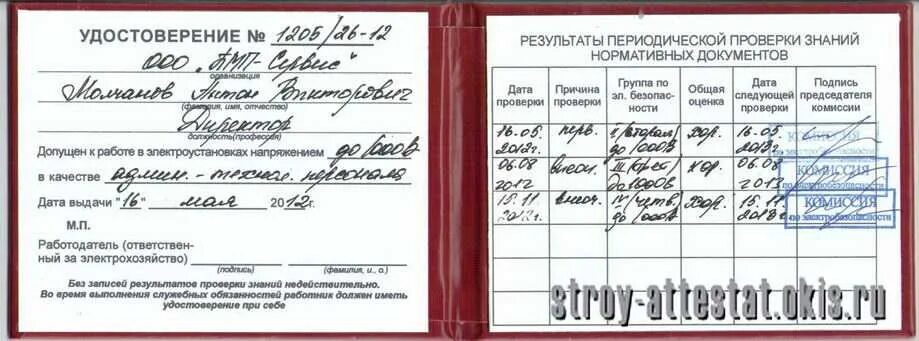 УДОСТОВЕРЕНИЕ № 1205/26-12
ООО "ПМП-Сервис"
организация
Молчанов Антон Викторович
(фамилия, имя, отчество)
Директор
должность(профессия)
Допущен к работе в электроустановках напряжением до 1000В
в качестве админ.-технол. персонала
Дата выдачи "16" мая 2012г.
М.П.
Работодатель (ответствен-
ный за электрохозяйство)
(подпись) (фамилия, и., о.)
Без записей результатов проверки знаний недействительно.
Во время выполнения служебных обязанностей работник должен иметь
удостоверение при себе
РЕЗУЛЬТАТЫ ПЕРИОДИЧЕСКОЙ ПРОВЕРКИ ЗНАНИЙ
НОРМАТИВНЫХ ДОКУМЕНТОВ
Дата проверки Причина проверки Группа по эл. безопас-ности Общая оценка Дата следующей проверки Подпись председателя комиссии
16.05. перв. II (вторая) хор. 16.05
2012г. до 1000В 2013г. КОМИССИЯ
по электробезопасности
06.08 внеоч. III (трет.) хор. 06.08 КОМИССИЯ
2012 до 1000В 2013 по электробезопасности
15.11 внеоч. IV (четв.) хор. 15.11 КОМИССИЯ
2012г. до 1000В 2013г. по электробезопасности
stroy-attestat.okis.ru